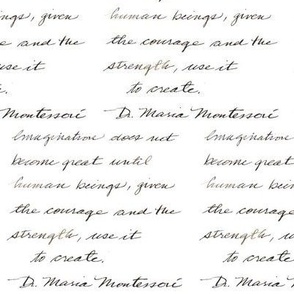 ngs, given human beings, given
e and the the courage and the
use it strength, use it
e. to create.
Montessori D. Maria Montessori
Imagination does not Imagination
become great until become gr
human beings, given human be
the courage and the the coura
strength, use it strength,
to create. to crea
D. Maria Montessori D. Maria